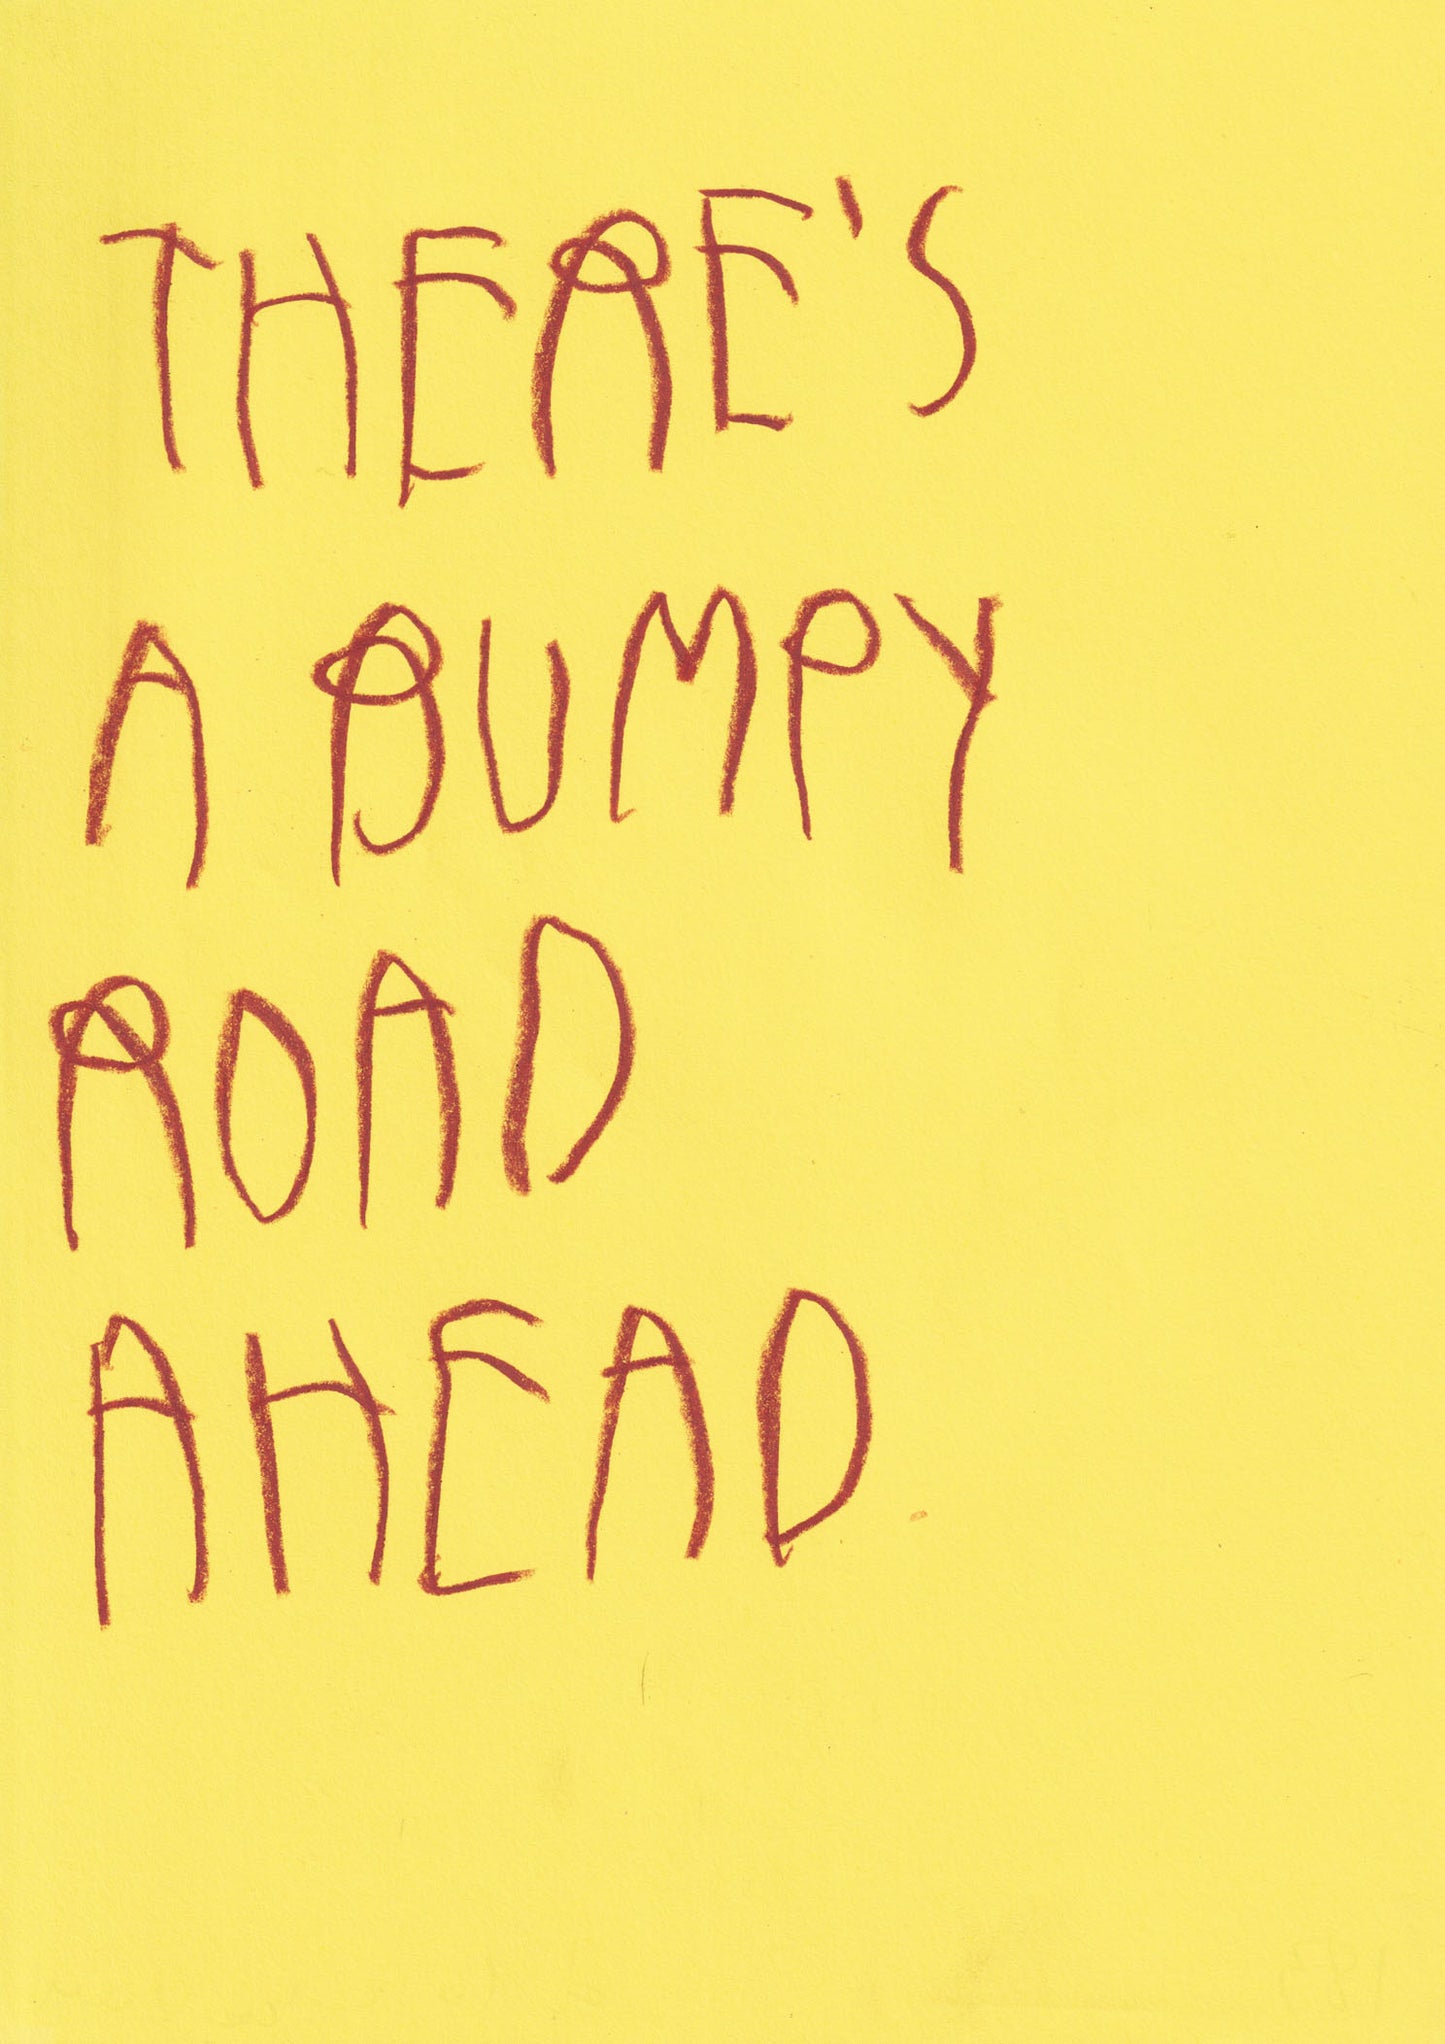 THERE'S
A BUMPY
ROAD
AHEAD